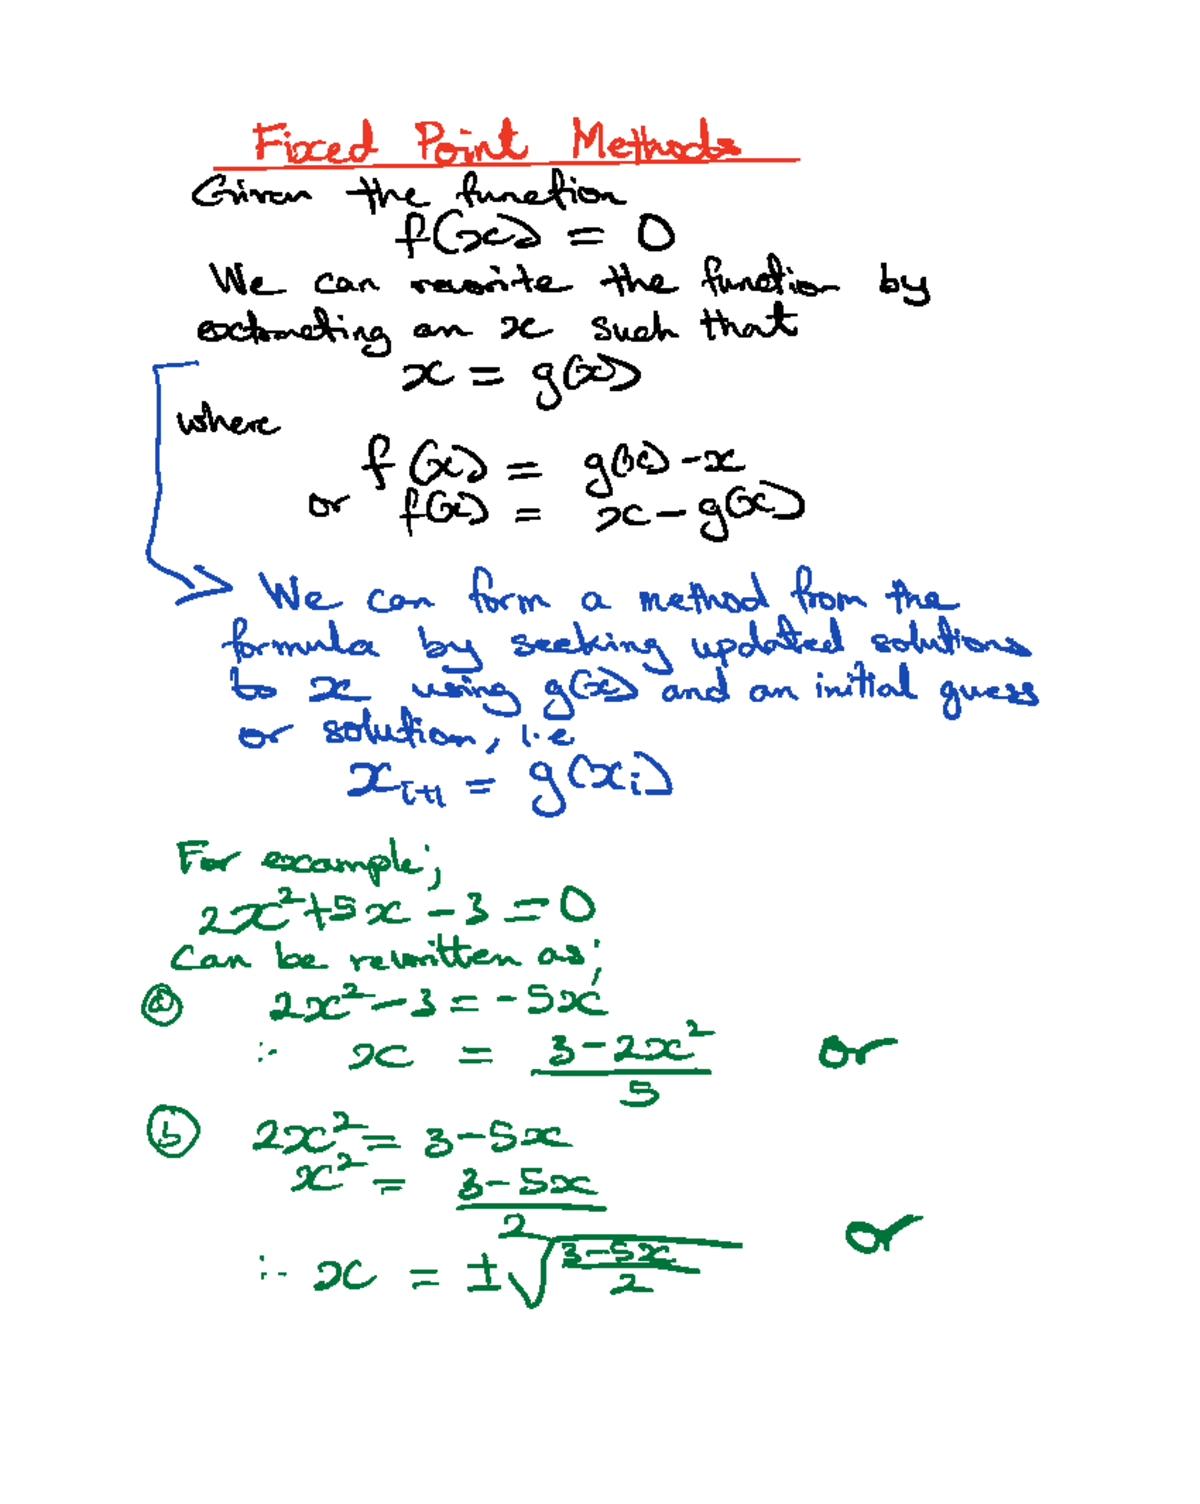 Fixed Point Methods
Given the function
f(x) = 0
We can rewrite the function by
extracting an x such that
x = g(x)
where
f(x) = g(x) - x
or f(x) = x - g(x)
We can form a method from the
formula by seeking updated solutions
to x using g(x) and an initial guess
or solution, i.e
xᵢ₊₁ = g(xᵢ)
For example;
2x² + 5x - 3 = 0
Can be rewritten as;
ⓐ 2x² - 3 = -5x
∴ x = (3 - 2x²)/5 or
ⓑ 2x² = 3 - 5x
x² = (3 - 5x)/2
∴ x = ±√((3 - 5x)/2) or